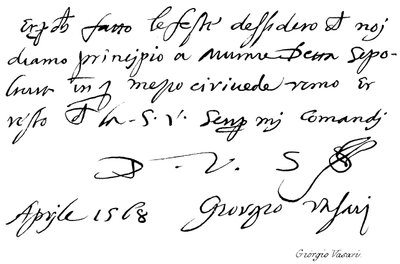 fatto le feste dessidero ch noj
diamo principio a murare Detta Sepo-
ltura in mezo ci rivedereno Et
resto D la . S . V . Senp mj Comandj
D . V . S
Aprile 1568 Giorgio Vasarj
Giorgio Vasari.